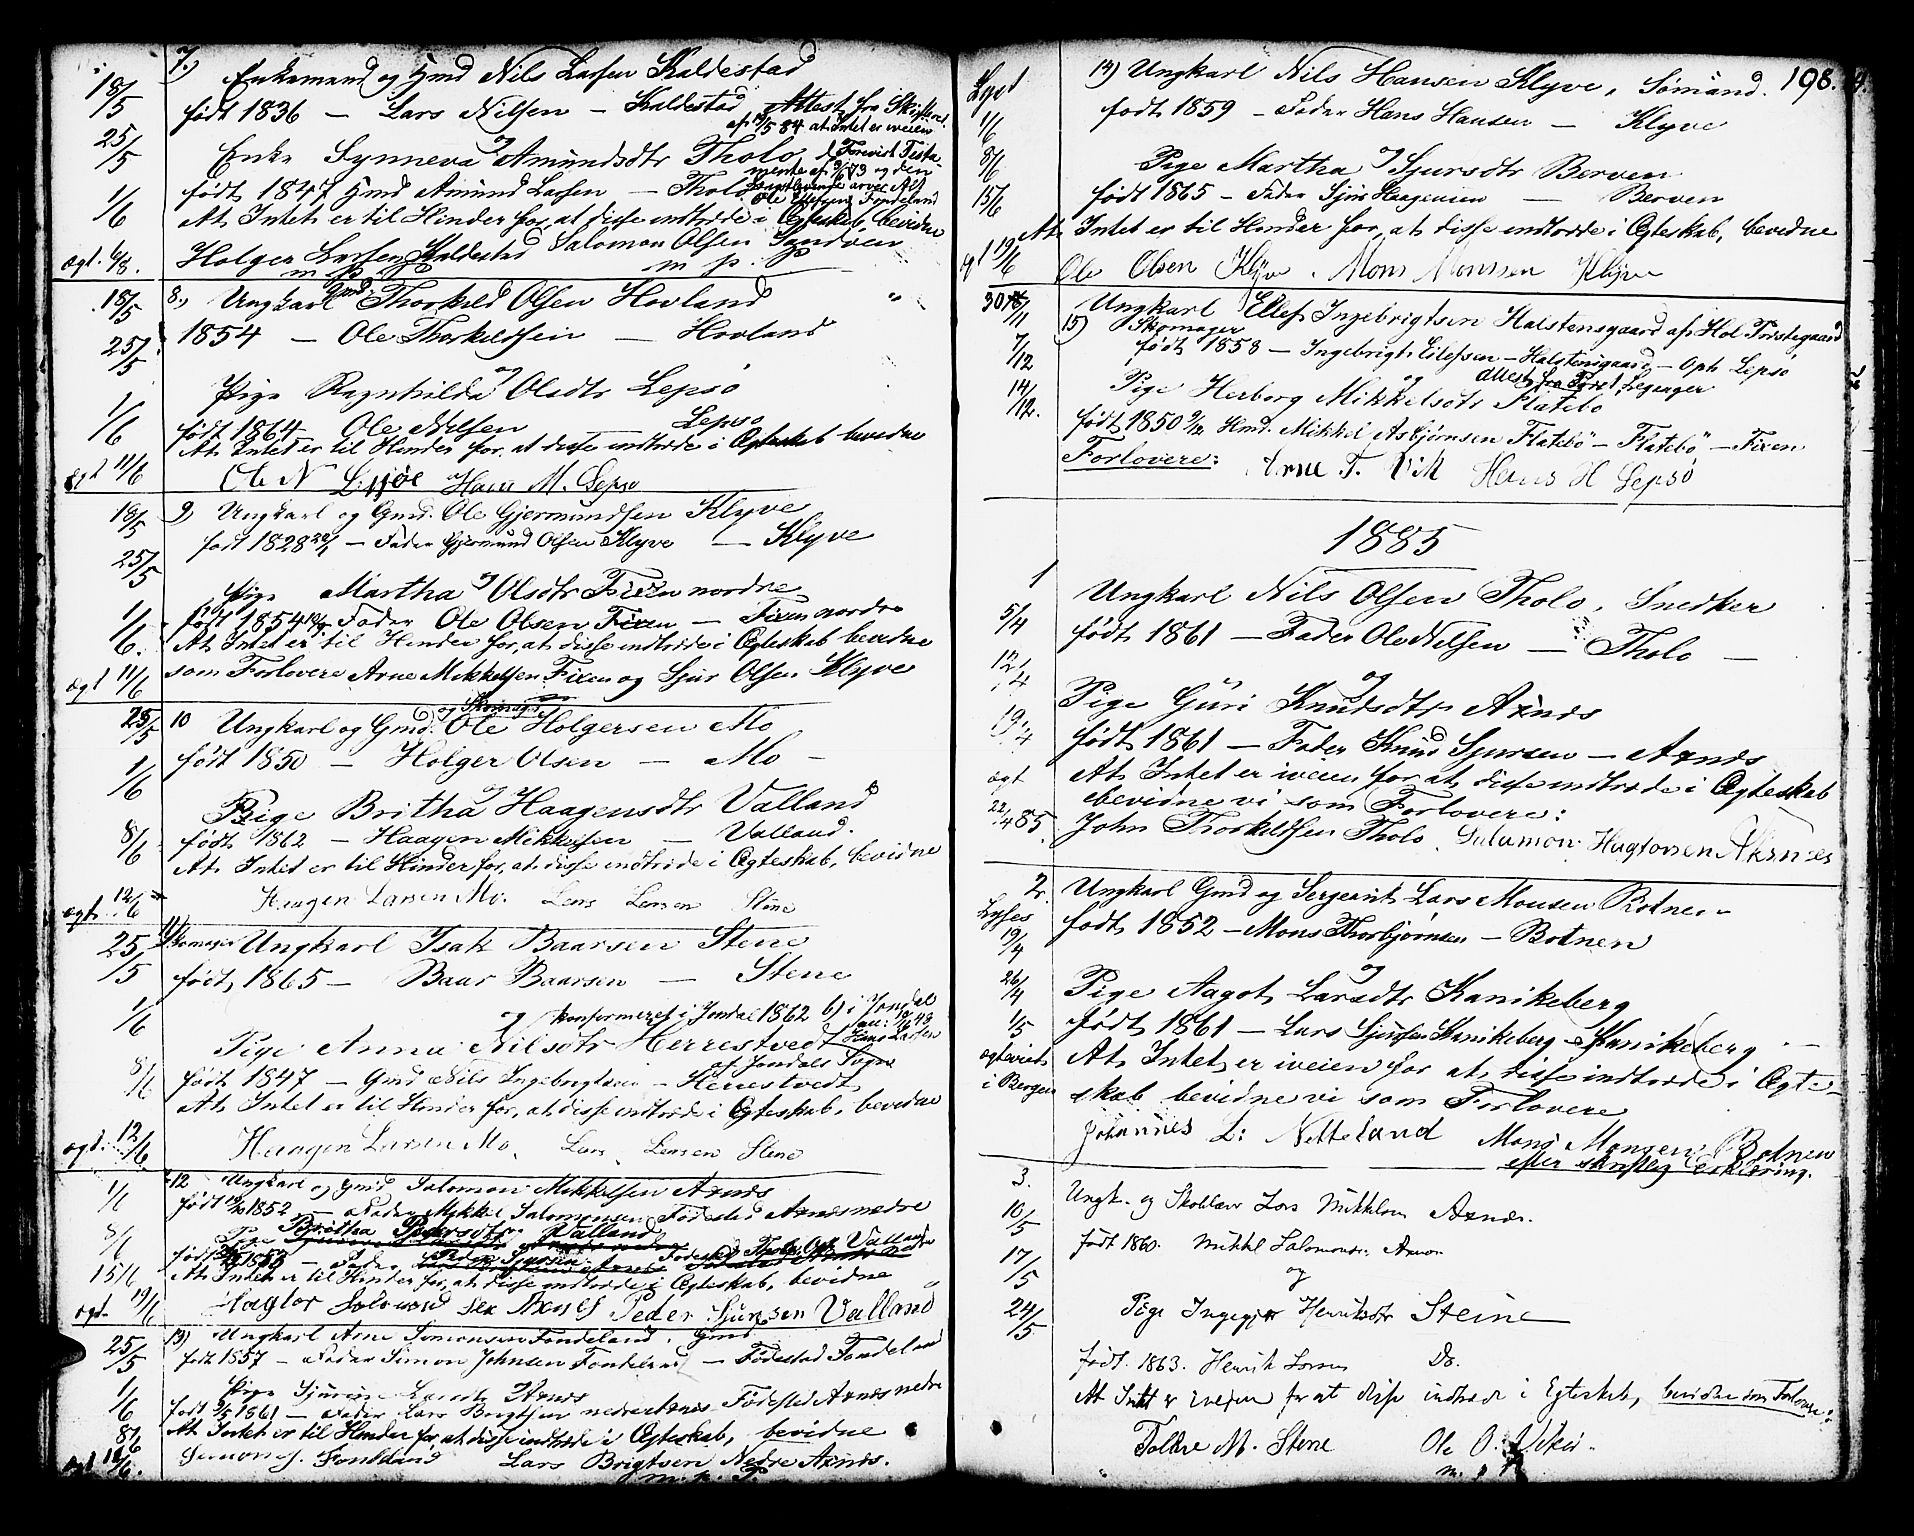 7.) Enkemand og Gmd Nils Larsen Kaldestad
18/5
født 1836 — Lars Nilsen — Kaldestad Attest fra
af 17/5 84 at Intet er iveien
25/5
og
Enke Synneva Amundsdtr Tholo
født 1847 Gmd Amund Larsen — Tholo
1/6
At Intet er til Hinder for, at disse indtræde i Ægteskab, bevidne
Holger Larsen Kaldestad Salomon Olsen Sandven
ægt. 6/8.
m. p. P. m. p. P
18/5 8., Ungkarl Gmd. Thorkild Olsen Hovland
1854 — Ole Thorkeldsen — Hovland
25/5
og
Pige Ragnhilda Olsdtr Lepsø
1/6
født 1864 Ole Nilsen — Lepsø
At Intet er til Hinder for, at disse indtræde i Ægteskab bevidne
ægt 11/6 Ole N Lepsøe Hans M. Lepsø
18/5 9) Ungkarl og Gmd. Ole Gjermundsen Klyve
født 1828 — Fader Gjermund Olsen Klyve — Klyve
25/5
og
Pige Martha Olsdtr Fixen nordre
1/6. født 1854 Fader Ole Olsen Fixen — Fixen nordre
At Intet er til Hinder for, at disse indtræde i Ægteskab bevidne
ægt 11/6 som Forlovere Arne Mikkelsen Fixen og Sjur Olsen Klyve
og Skomager
25/5 10 Ungkarl og Gmd. Ole Holgersen Mo
født 1850 — Holger Olsen — Mo —
1/6
og
Pige Britha Haagensdtr Valland
8/6 født 1862 — Haagen Mikkelsen — Valland.
At Intet er til Hinder for, at disse indtræde i Ægteskab, bevidne
ægt. 12/6 Haagen Larsen Mo. Lars Larsen Stene
25/5 11 Skomager Ungkarl Isak Baarsen Stene
født 1865 — Baar Baarsen — Stene
1/6
og konfirmeret i Jondal 1862 6) i Jondal
Pige Anna Nilsdtr Herrestvedt
af Jondals Sogn
8/6 født 1847 — Gmd Nils Ingebrigtsen — Herrestvedt
At Intet er til Hinder for, at disse indtræde i Ægteskab, bevidne
ægt. 12/6 Haagen Larsen Mo. Lars Larsen Stene
12 Ungkarl og Gmd Salomon Mikkelsen Axnæs
1/6
født 1852 — Fader Mikkel Salomonsen Fødested Axnæs nedre
8/6
Pige Britha Pedersdtr Valland
født 1853 — Fader Peder Sjursen
15/6 At Intet er til Hinder for, at disse indtræde i Ægteskab, bevidne
ægt. 19/6 Hagtor Solomons Sen Axnes Peder Sjursen Valland
25/5 13) Ungkarl Arne Simonsen Fondeland. Gmd
født 1857 — Fader Simon Johnsen Fondeland — Fødested Fondeland
1/6 Pige Sjurine Larsdtr Axnæs
født 9/5 1861 — Fader Lars Brigtsen nedre Axnæs Fødested Axnæs nedre
8/6 At Intet er til Hinder for, at disse indtræde i Ægteskab, bevidne
ægt 12/6. Simon J. Fondeland Lars Brigtsen Nedre Axnæs.
m. p. P.
14) Ungkarl Nils Hansen Klyve, Sømand. 198.
Lyst
født 1859 — Fader Hans Hansen — Klyve
1/6
og
8/6 Pige Martha Sjursdtr Berven
15/6 født 1865 — Fader Sjur Haagensen — Berven
At Intet er til Hinder for, at disse indtræde i Ægteskab, bevidne
19/6 Ole Olsen Klyve. Mons Monssen Klyve
30/11 Ungkarl Ellef Ingebrigtsen Halstensgaard af Hol Præstegjæld
15) Skomager
7/12 født 1858 — Ingebrigt Eilefsen — Halstensgaard — Oph Lepsø
og Attest fra
14/12. Pige Herborg Mikkelsdtr Flatebø
født 1850 9/12 Hmd. Mikkel Asbjørnsen Flatebø — Flatebø — Fixen
Forlovere: Arne T. Vik Hans H Lepsø
1885
1 Ungkarl Nils Olsen Tholo, Snedker
5/4
født 1861 — Fader Ole Nilsen — Tholo —
12/4
og
Pige Guri Knudsdtr Axnæs
19/4
født 1861 — Fader Knud Sjursen — Axnæs
ægt At Intet er iveien for at disse indtræde i Ægteskab
22/4 85. bevidne vi som Forlovere:
John Thorkeldsen Tholo. Salamon Hagtorsen Aksnes
2. Ungkarl Gmd og Sergeant Lars Monsen Botnen
Lyses
19/4 født 1852 — Mons Thorbjørnsen — Botnen
og
26/4 Pige Aagot Larsdtr Kanikeberg
1/5 født 1861 — Lars Sjursen Kanikeberg — Kanikeberg
ægteviet i Bergen At Intet er iveien for at disse indtræde i Ægte-
skab bevidne vi som Forlovere
Johannes L: Netteland Mons Monsen Botnen
efter skriftlig Erklæring.
3.
Ungk. og Skolelær Lars Mikkelsen Axnæs.
10/5
født 1860. Mikkel Salomonsen Axnæs
17/5
og
24/5 Pige Ingegjer Henriksdtr Steine
født. 1863. Henrik Larsen Do.
At Intet er iveien for at disse indtræde i Egteskab, bevidne som Forlovere:
Tollre M. Stene Ole O.
m. p.